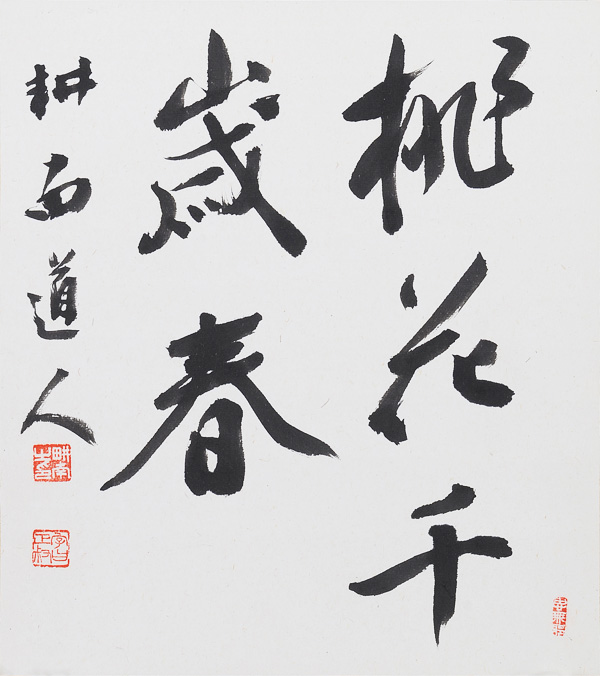 桃花千
歳春
耕南道人